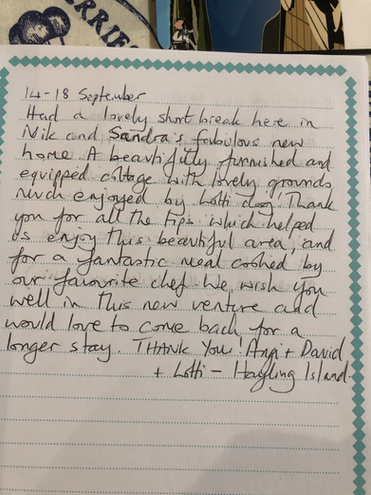 ERRIES
14-18 September
Had a lovely short break here in
Nik and Sandra's fabulous new
home. A beautifully furnished and
equipped cottage with lovely grounds
much enjoyed by Lotti dog! Thank
you for all the tips which helped
us enjoy this beautiful area, and
for a fantastic meal cooked by
our favourite chef. We wish you
well in this new venture and
would love to come back for a
longer stay. THANK YOU! Ann + David
+ Lotti - Hayling Island.